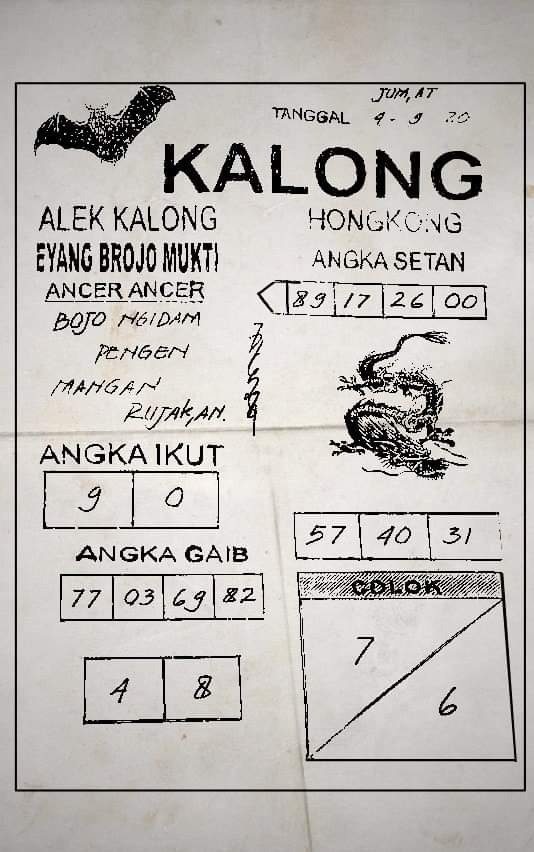 JUM,AT
TANGGAL 4 - 9 20
KALONG
ALEK KALONG
EYANG BROJO MUKTI
ANCER ANCER
BOJO NGIDAM
PENGEN
MANGAN
RUJAK,AN.
HONGKONG
ANGKA SETAN
89 17 26 00
ANGKA IKUT
9 0
57 40 31
ANGKA GAIB
77 03 69 82
4 8
COLOK
7
6